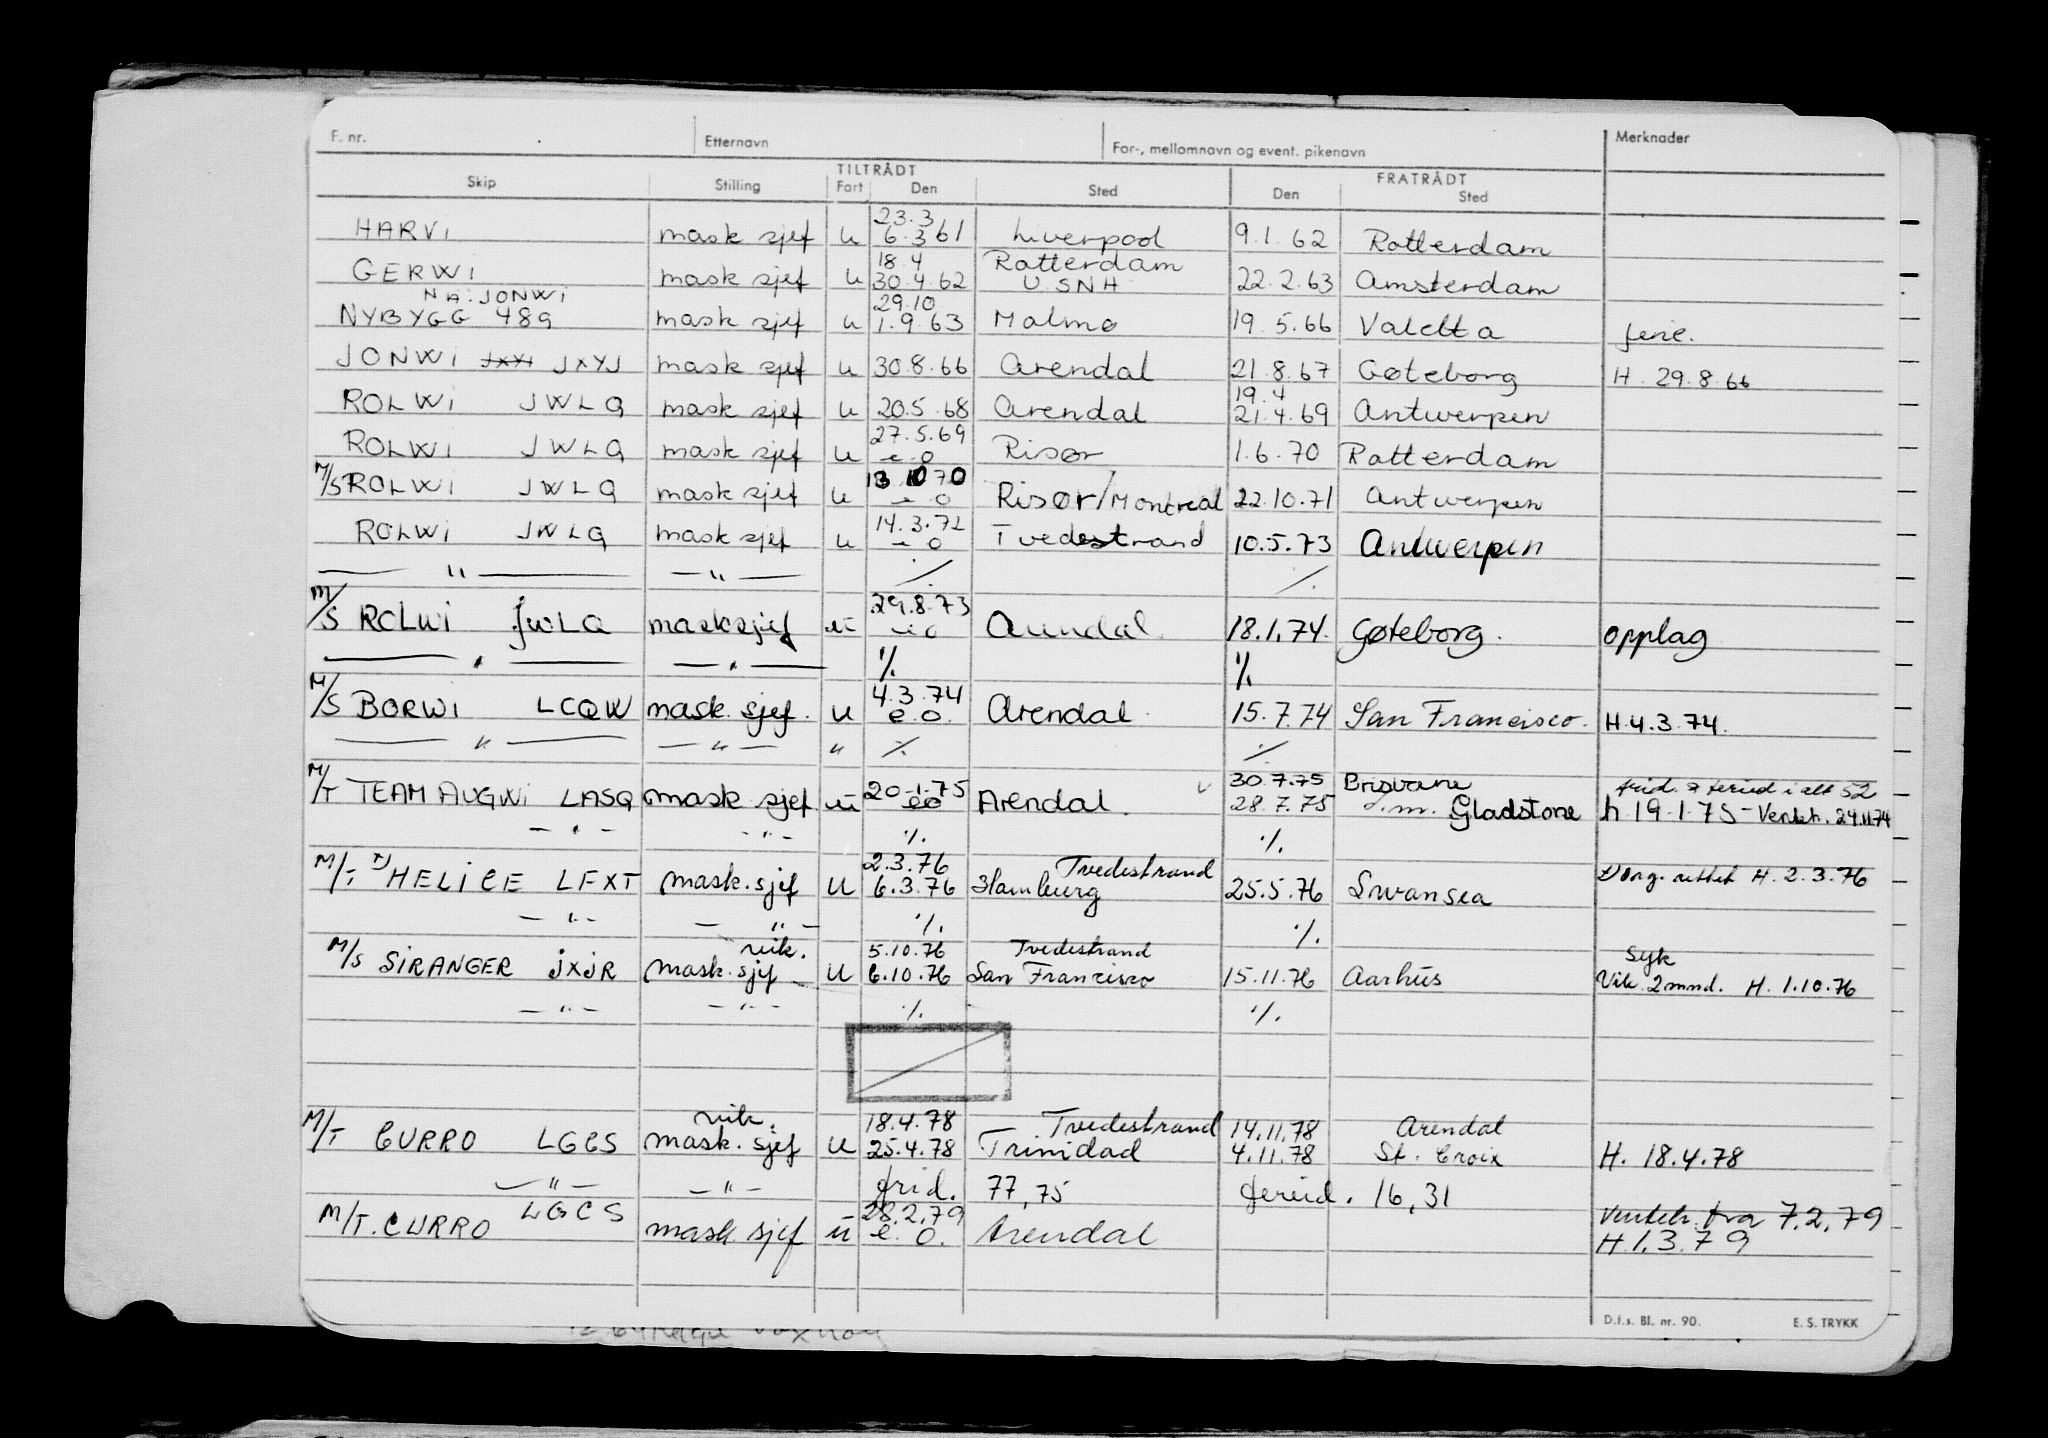 F. nr. Etternavn For-, mellomnavn og event. pikenavn Merknader
TILTRÅDT FRATRÅDT
Skip Stilling Fart Den Sted Den Sted
23.3
HARVI mask sjef u 6.3 61 Liverpool 9.1.62 Rotterdam
18.4 Rotterdam
GERWI mask sjef u 30.4.62 USNH 22.2.63 Amsterdam
NÅ: JONWI 29.10
NYBYGG 489 mask sjef u 1.9.63 Malmø 19.5.66 Valetta ferie.
JONWI JXYJ mask sjef u 30.8.66 Arendal 21.8.67 Gøteborg H. 29.8.66
19.4
ROLWI JWLQ mask sjef u 20.5.68 Arendal 21.4.69 Antwerpen
27.5.69
ROLWI JWLQ mask sjef u e.o Risør 1.6.70 Rotterdam
13.10 70
M/S ROLWI JWLQ mask sjef u e.o Risør/Montreal 22.10.71 Antwerpen
14.3.72
ROLWI JWLQ mask sjef u e.o Tvedestrand 10.5.73 Antwerpen
— " — — " — ./. ./.
29.8.73
M/S ROLWI JWLQ mask sjef u e.o Arendal 18.1.74. Gøteborg. opplag
— " — — " — ./. ./.
4.3.74
M/S BORWI LCQW mask. sjef. u e.o. Arendal 15.7.74 San Francisco. H.4.3.74.
— " — — " — " ./. ./.
20.1.75 30.7.75 Brisbane frid. & feried i alt 52
M/T TEAM AUGWI LASQ mask sjef u e.o Arendal 28.7.75 Gladstone h 19.1.75 - Venteh. 24.11.74
— " — — " — ./. ./.
2.3.76 Tvedestrand
M/T HELICE LFXT mask. sjef u 6.3.76 Hamburg 25.5.76 Swansea rettet H. 2.3.76
— " — — " — ./. ./.
vik. 5.10.76 Tvedestrand Syk
M/S SIRANGER JXJR mask. sjef u 6.10.76 San Francisco 15.11.76 Aarhus Vik 2 mnd. H. 1.10.76
— " — — " — ./. ./.
vik. 18.4.78 Tvedestrand 14.11.78 Arendal
M/T CURRO LGCS mask. sjef u 25.4.78 Trinidad 4.11.78 St. Croix H. 18.4.78
— " — — " — frid. 77,75 feried. 16,31
LGCS 28.2.79 Venteh. fra 7.2.79
M/T. CURRO mask. sjef u e.o. Arendal H.1.3.79
D.f.s. Bl. nr. 90. E. S. TRYKK